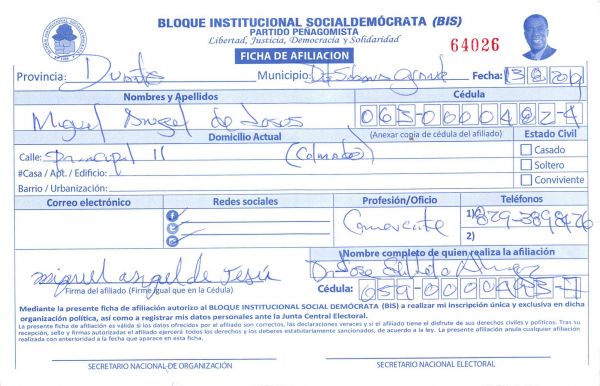 BLOQUE INSTITUCIONAL SOCIALDEMÓCRATA (BIS)
PARTIDO PEÑAGOMISTA
Libertad, Justicia, Democracia y Solidaridad
64026
FICHA DE AFILIACION
Provincia: Duarte Municipio: Fecha:
Nombres y Apellidos Cédula
Miguel Angel de Jesus
Domicilio Actual (Anexar copia de cédula del afiliado) Estado Civil
Calle: Principal 11 (Colmado) Casado
#Casa / Apt. / Edificio: Soltero
Barrio / Urbanización: Conviviente
Correo electrónico Redes sociales Profesión/Oficio Teléfonos
Comerciante 1) 829-3898476
2)
Nombre completo de quien realiza la afiliación
miguel angel de Jesus Dr Jose
Firma del afiliado (Firme igual que en la Cédula) Cédula:
Mediante la presente ficha de afiliación autorizo al BLOQUE INSTITUCIONAL SOCIAL DEMÓCRATA (BIS) a realizar mi inscripción única y exclusiva en dicha
organización política, así como a registrar mis datos personales ante la Junta Central Electoral.
La presente ficha de afiliación es válida si los datos ofrecidos por el afiliado son correctos, las declaraciones veraces y si el afiliado tiene el disfrute de sus derechos civiles y políticos. Tras su
recepción, sello y firmas autorizadas el afiliado ejercerá todos los derechos y los deberes estatutariamente sancionados, de acuerdo a la ley. La presente afiliación anula cualquier afiliación
realizada con anterioridad a la fecha que aparece en esta ficha.
SECRETARIO NACIONAL DE ORGANIZACIÓN SECRETARIO NACIONAL ELECTORAL